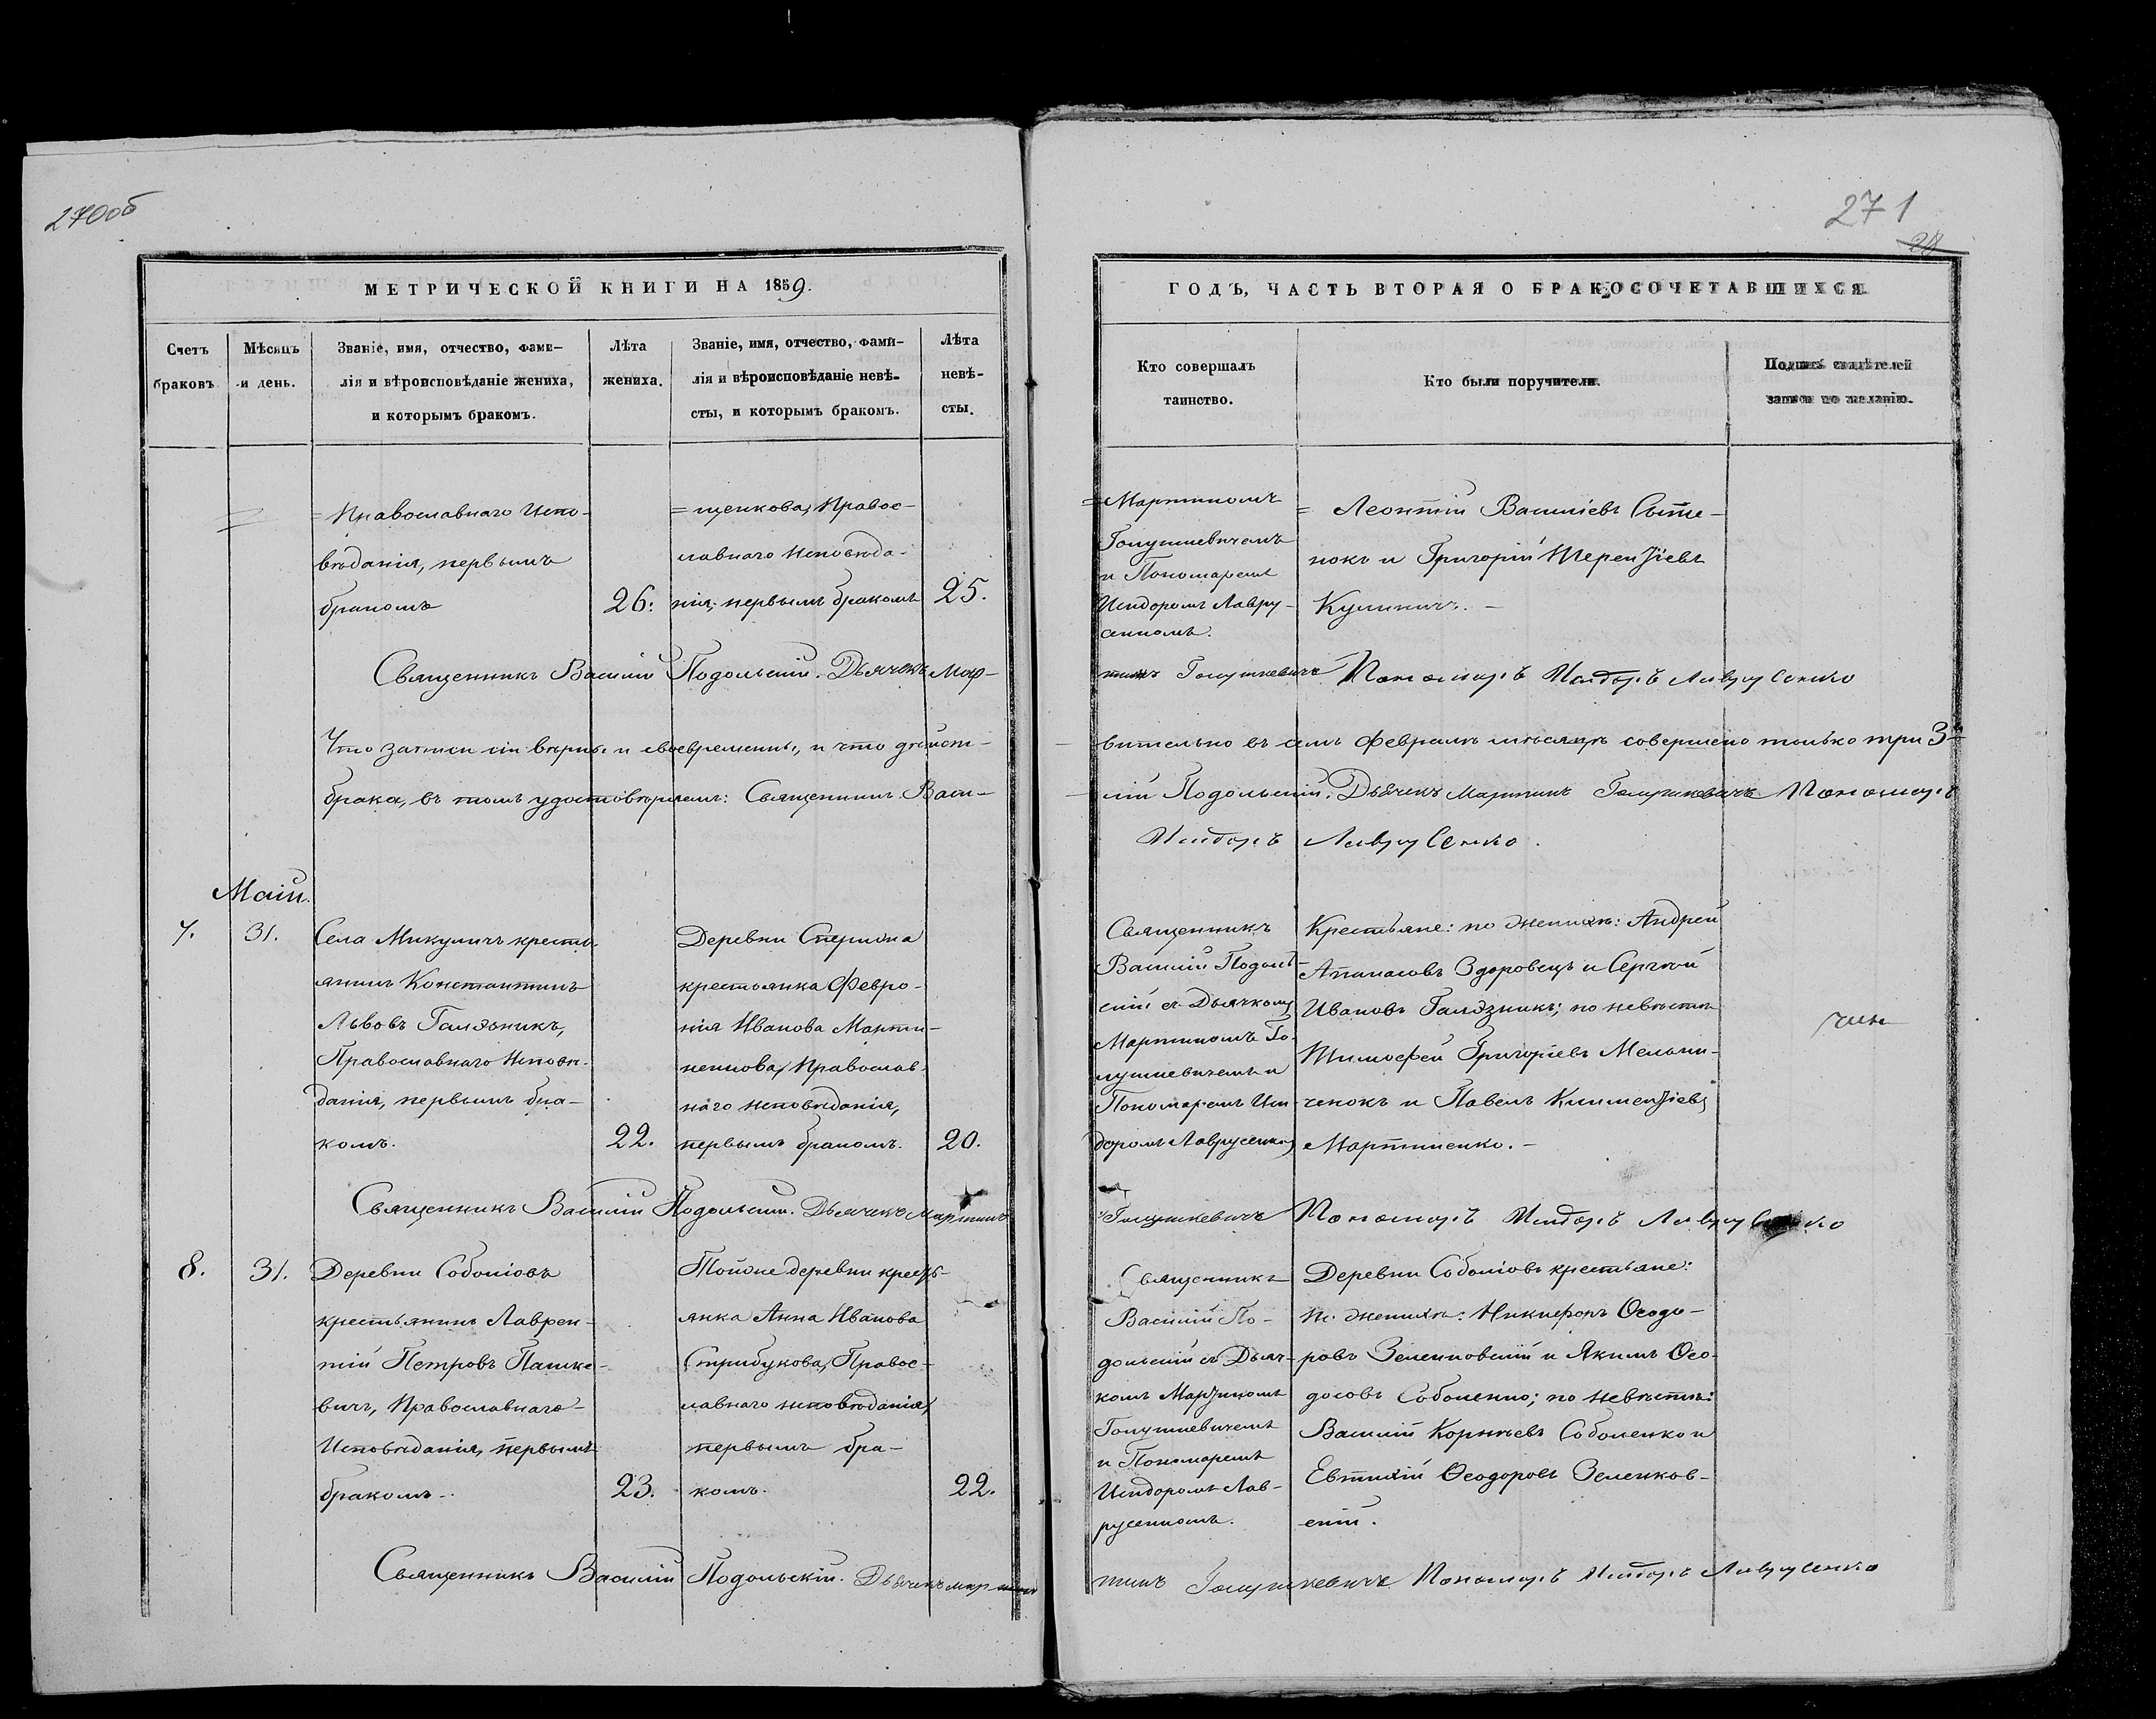 270об
271
28
МЕТРИЧЕСКОЙ КНИГИ НА 1859.
Счетъ браковъ
Мѣсяцъ и день.
Званіе, имя, отчество, фами-
лія и вѣроисповѣданіе жениха,
и которымъ бракомъ.
Лѣта
жениха.
Званіе, имя, отчество, фами-
лія и вѣроисповѣданіе невѣ-
сты, и которымъ бракомъ.
Лѣта
невѣ-
сты.
=Православнаго Испо-
вѣданія, первымъ
бракомъ
26.
=щенкова, Правос-
лавнаго исповѣда-
нія, первымъ бракомъ
25.
Священникъ Василій Подольскій. Дьячекъ Мар-
Что записи сіи вѣрны и своевременны, и что дѣйст-
брака, въ томъ удостовѣряемъ: Священникъ Васи-
Маій.
7.
31.
Села Микуличъ кресть-
янинъ Константинъ
Львовъ Галазникъ,
Православнаго Исповѣ-
данія, первымъ бра-
комъ.
22.
Деревни
крестьянка Февро-
нія Иванова Марти-
ненкова, Православ-
наго исповѣданія,
первымъ бракомъ.
20.
Священникъ Василій Подольскій. Дьячекъ Мартинъ
8.
31.
Деревни Соболіовъ
крестьянинъ Лаврен-
тій Петровъ Пашке-
вичъ, Православнаго
Исповѣданія, первымъ
бракомъ.
23.
Тойже деревни кресть-
янка Анна Иванова
Стрибукова, Правос-
лавнаго исповѣданія,
первымъ бра-
комъ.
22.
Священникъ Василій Подольскій. Дьячекъ Мартинъ
ГОДЪ, ЧАСТЬ ВТОРАЯ О БРАКОСОЧЕТАВШИХСЯ.
Кто совершалъ
таинство.
Кто были поручители.
Подпись свидѣтелей
записи по желанію.
=Мартиномъ
Голушкевичемъ
и Пономаремъ
Исидоромъ Лавру-
сенкомъ.
= Леонтій Василіевъ
нокъ и Григорій Терентіевъ
Кулиничъ.
тинъ Голушкевичъ Пономарь Исидоръ Лаврусенко
вительно въ семъ Февралѣ мѣсяцѣ совершено только три 3
лій Подольскій. Дьячекъ Мартинъ Голушкевичъ Пономарь
Исидоръ Лаврусенко.
Священникъ
Василій Подоль-
скій съ Дьячкомъ
Мартиномъ Го-
лушкевичемъ и
Пономаремъ Иси-
доромъ Лаврусенкомъ
Крестьяне: по женихѣ: Андрей
Апанасовъ Здоровецъ и Сергѣй
Ивановъ Галазникъ; по невѣстѣ
Тимофей Григоріевъ Мельни-
ченокъ и Павелъ Климентіевъ
Мартиненко.
Голушкевичъ Пономарь Исидоръ Лаврусенко
Священникъ
Василій По-
дольскій съ Дьяч-
комъ Мартиномъ
Голушкевичемъ
и Пономаремъ
Исидоромъ Лав-
русенкомъ.
Деревни Соболіовъ крестьяне:
по женихѣ: Никифоръ Ѳеодо-
ровъ Зеленковскій и Якимъ Ѳео-
досовъ Соболенко; по невѣстѣ:
Василій Корнѣевъ Соболенко и
Евтихій Ѳеодоровъ Зеленков-
скій.
тинъ Голушкевичъ Пономарь Исидоръ Лаврусенко